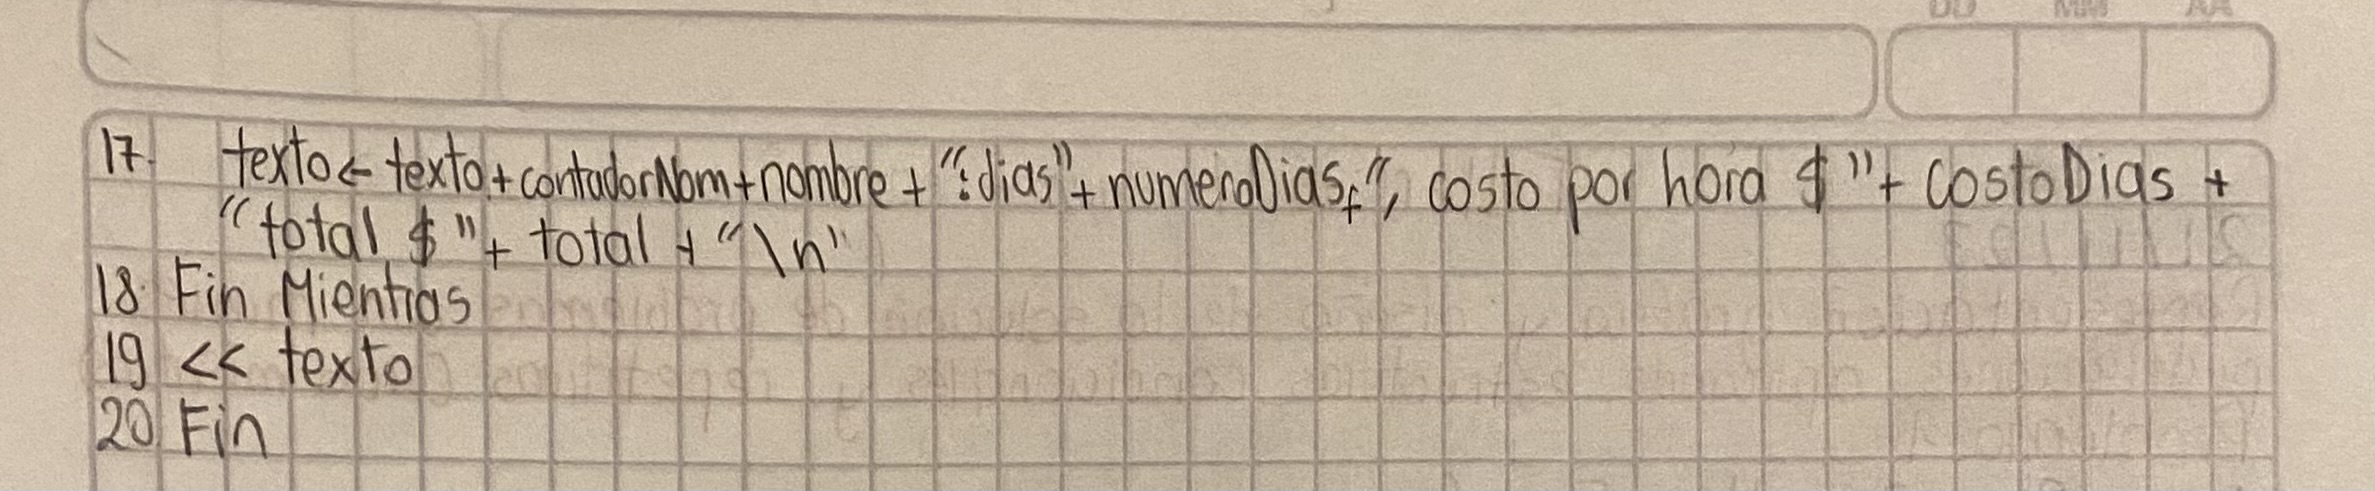 DD MM AA
17. texto ← texto + contadorNom + nombre + ": dias" + numeroDias + ", costo por hora $ " + costoDias +
"total $ " + total + "\n"
18. Fin Mientras
19 << texto
20 Fin